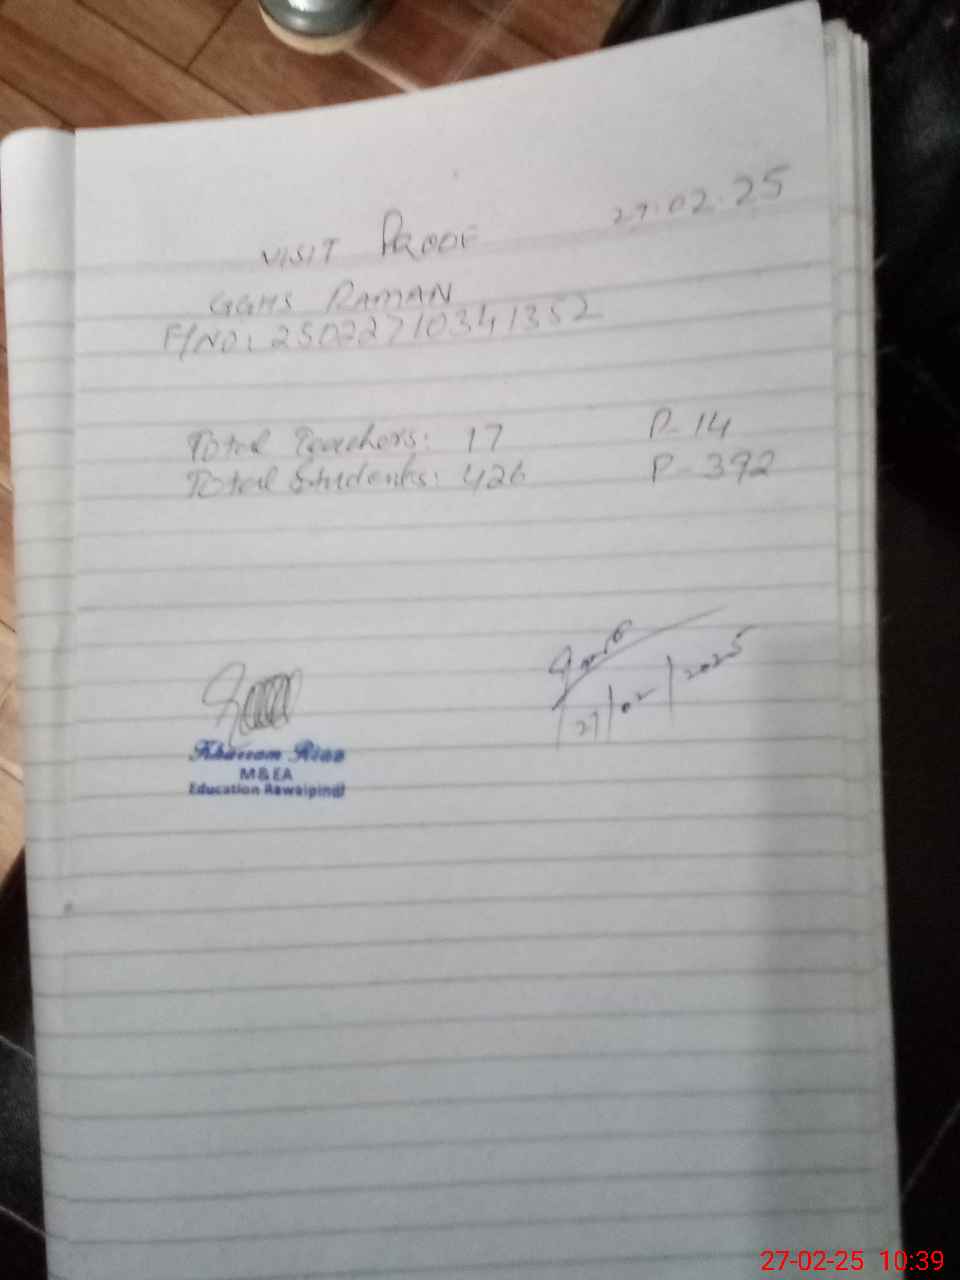 VISIT PROOF 27.02.25
GGHS RAMAN
F/NO: 25022710341352
Total Teachers: 17 P-14
Total Students: 426 P-392
27/02/2025
Khurram Riaz
M&EA
Education Rawalpindi
27-02-25 10:39